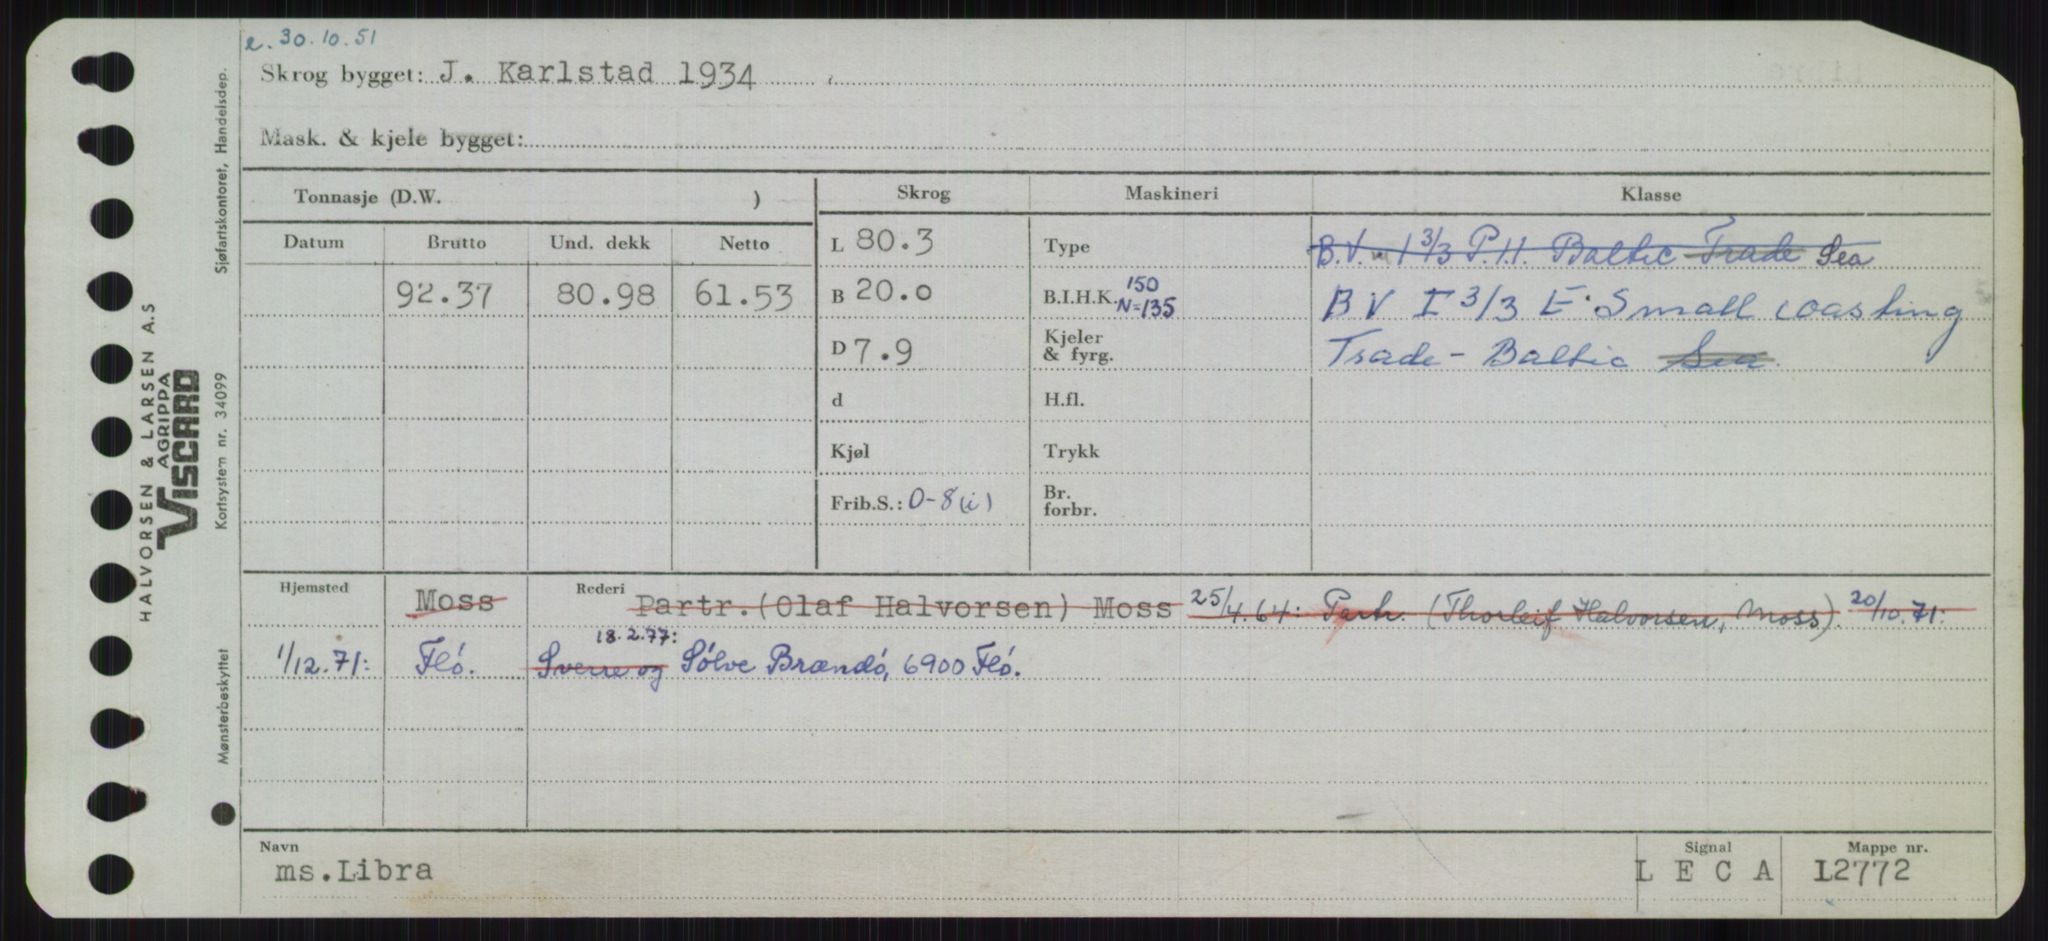 e. 30.10.51
Skrog bygget: J. Karlstad 1934
Mask. & kjele bygget:
Tonnasje (D.W. )
Skrog
Maskineri
Klasse
Datum
Brutto
Und. dekk
Netto
L 80.3
Type
B.V. 1 3/3 P.H. Baltic Trade Sea
92.37
80.98
61.53
B 20.0
B.I.H.K. 150
N=135
BV I 3/3 E Small coasting
D 7.9
Kjeler
& fyrg.
Trade - Baltic Sea
d
H.fl.
Kjøl
Trykk
Frib.S.: 0-8(i)
Br.
forbr.
Hjemsted
Moss
Rederi
Partr. (Olaf Halvorsen) Moss 25/4.64: Partr. (Thorleif Halvorsen, Moss) 20/10.71:
18.2.77:
1/12.71: Fló. Sverre og Sólve Brændó, 6900 Fló.
Navn
ms. Libra
Signal
LECA
Mappe nr.
L2772
HALVORSEN & LARSEN A.S
AGRIPPA
VISCARD
Mønsterbeskyttet
Kortsystem nr. 34099
Sjøfartskontoret, Handelsdep.